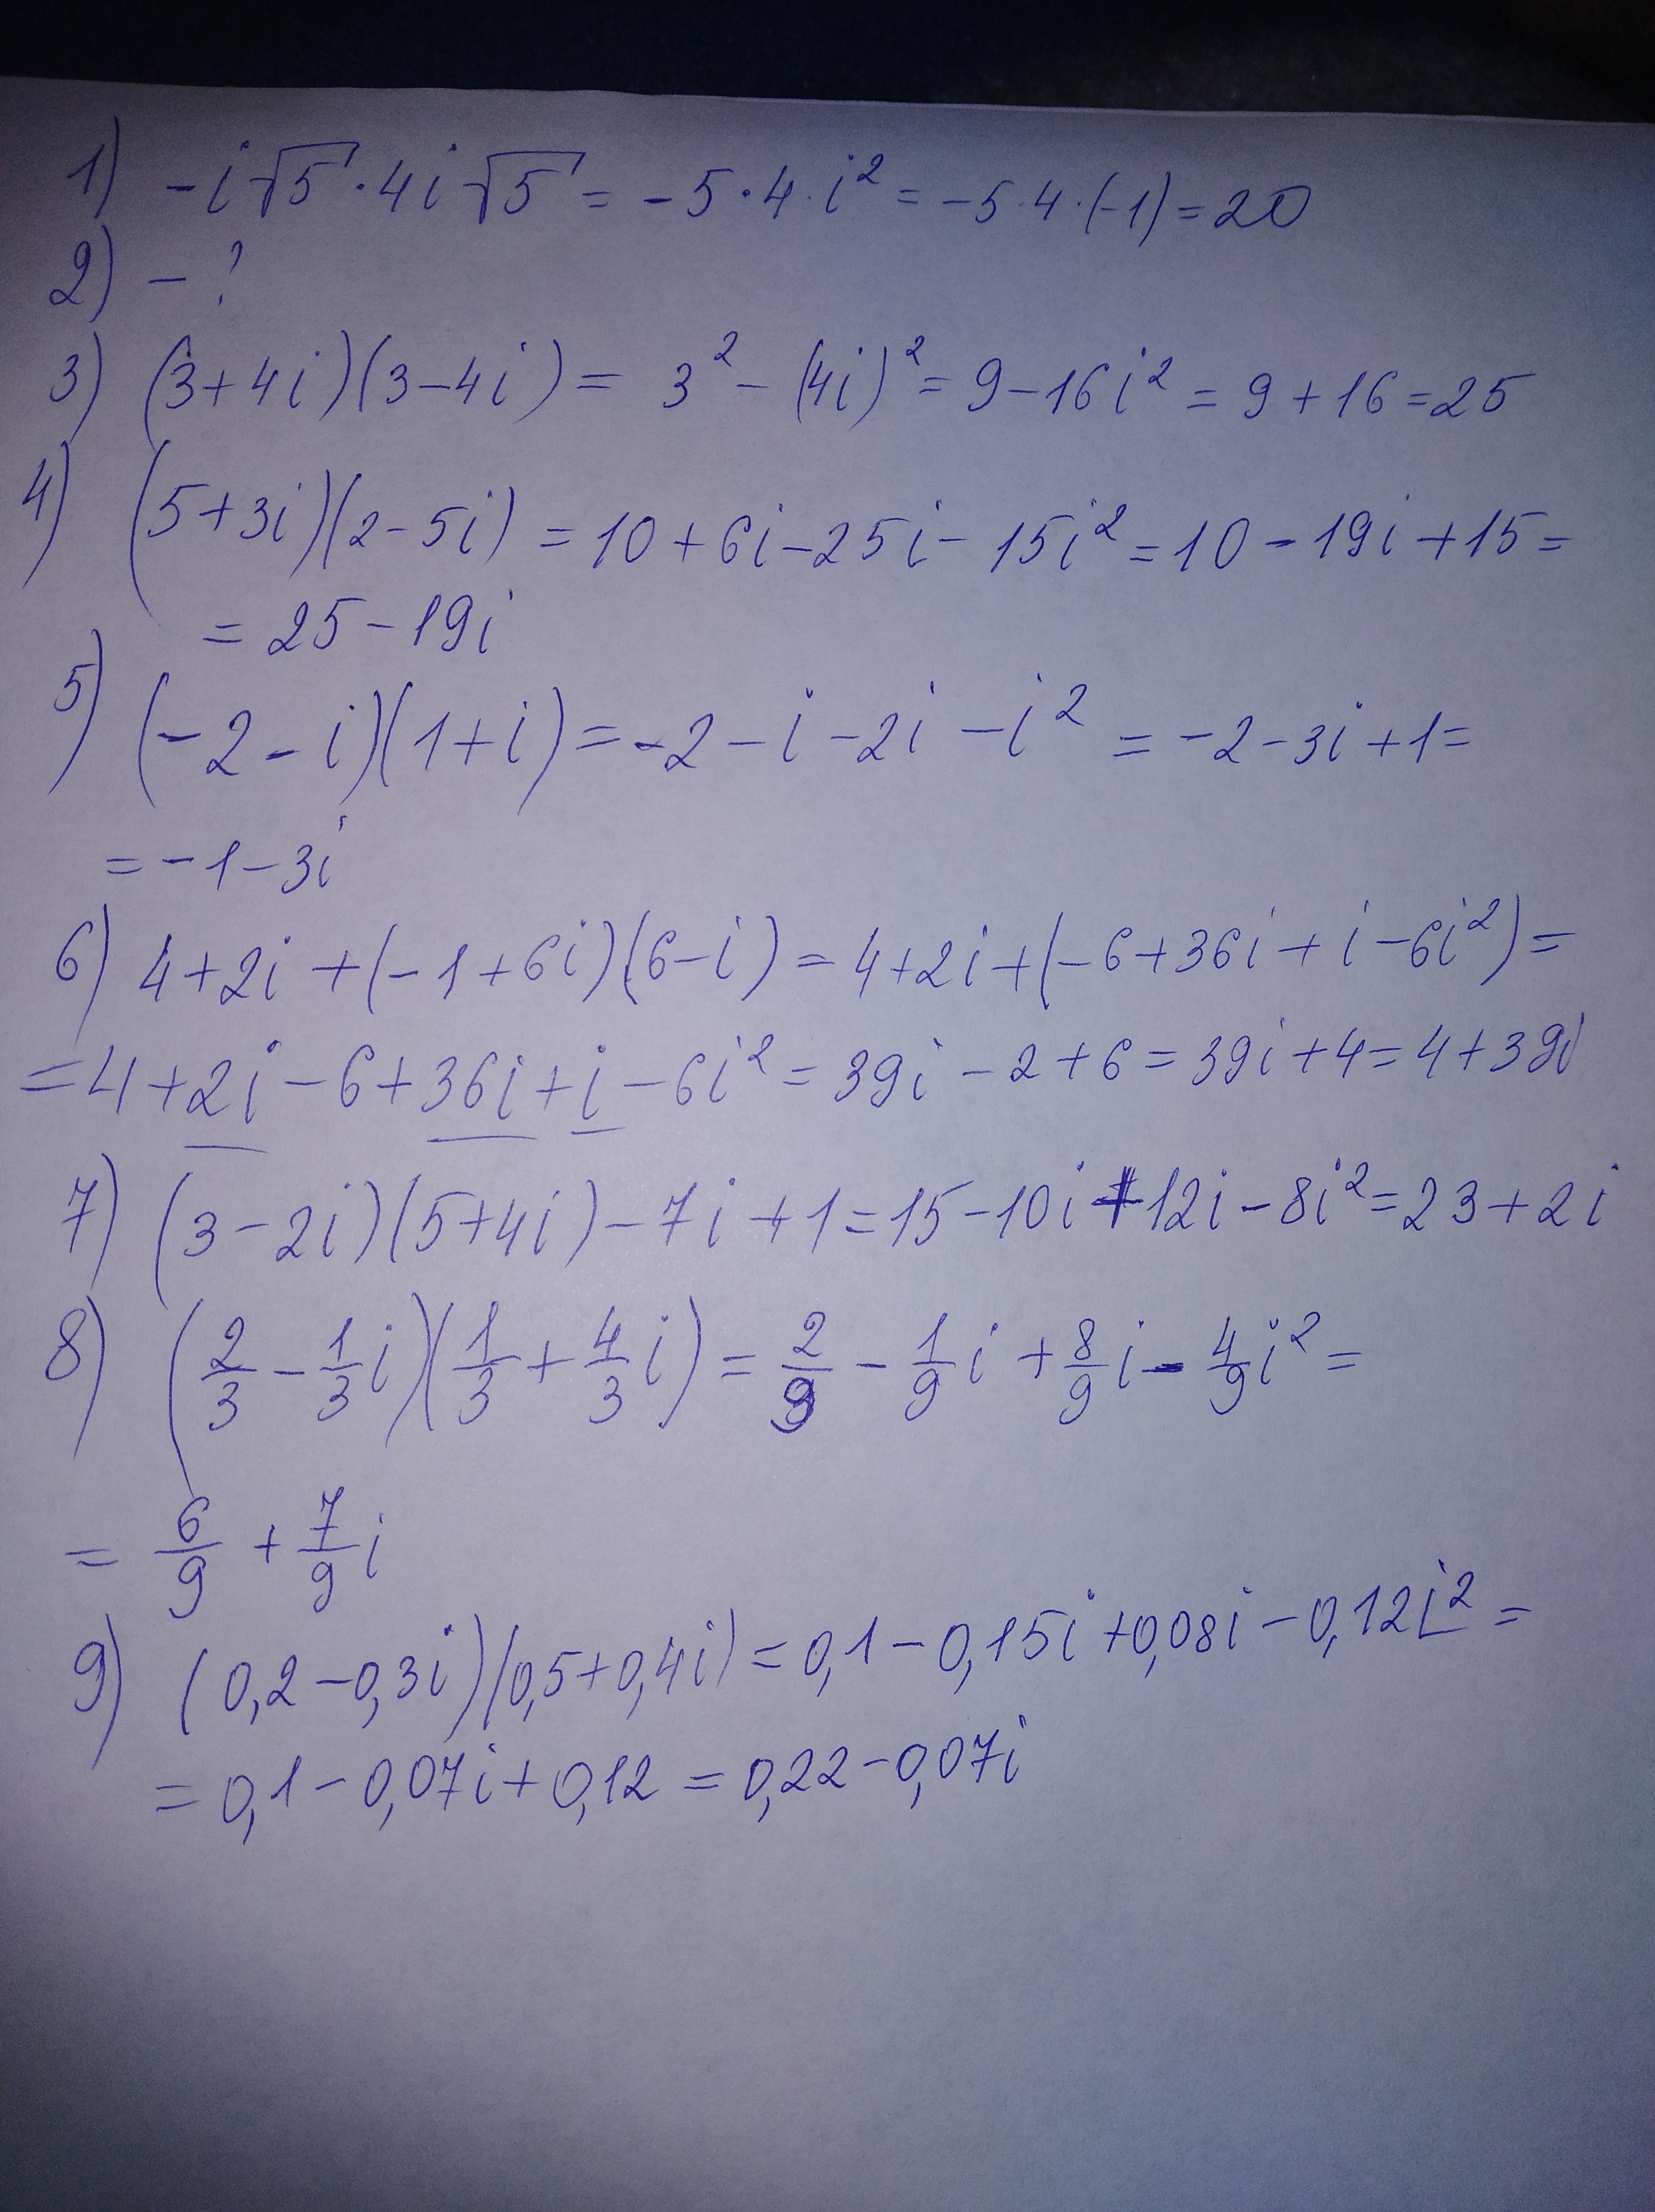 1) -i√5 · 4i√5 = -5·4·i² = -5·4·(-1) = 20
2) - ?
3) (3+4i)(3-4i) = 3² - (4i)² = 9 - 16i² = 9 + 16 = 25
4) (5+3i)(2-5i) = 10 + 6i - 25i - 15i² = 10 - 19i + 15 =
= 25 - 19i
5) (-2-i)(1+i) = -2 - i - 2i - i² = -2 - 3i + 1 =
= -1 - 3i
6) 4+2i+(-1+6i)(6-i) = 4+2i+(-6+36i+i-6i²) =
= 4+2i-6+36i+i-6i² = 39i - 2 + 6 = 39i + 4 = 4 + 39i
7) (3-2i)(5+4i) - 7i + 1 = 15 - 10i + 12i - 8i² = 23 + 2i
8) (2/3 - 1/3 i)(1/3 + 4/3 i) = 2/9 - 1/9 i + 8/9 i - 4/9 i² =
= 6/9 + 7/9 i
9) (0,2-0,3i)(0,5+0,4i) = 0,1 - 0,15i + 0,08i - 0,12i² =
= 0,1 - 0,07i + 0,12 = 0,22 - 0,07i